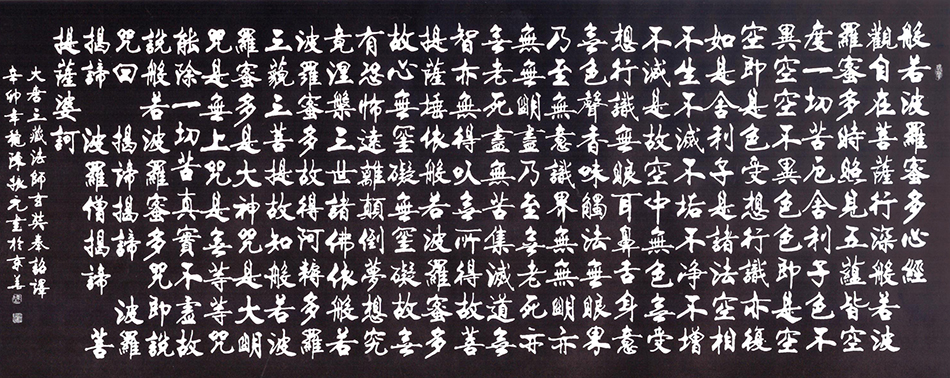 般若波羅蜜多心經
觀自在菩薩行深般若波
羅蜜多時照見五蘊皆空
度一切苦厄舍利子色不
異空空不異色色即是空
空即是色受想行識亦復
如是舍利子是諸法空相
不生不滅不垢不淨不增
不減是故空中無色無受
想行識無眼耳鼻舌身意
無色聲香味觸法無眼界
乃至無意識界無無明亦
無無明盡乃至無老死亦
無老死盡無苦集滅道無
智亦無得以無所得故菩
提薩埵依般若波羅蜜多
故心無罣礙無罣礙故無
有恐怖遠離顛倒夢想究
竟涅槃三世諸佛依般若
波羅蜜多故得阿耨多羅
三藐三菩提故知般若波
羅蜜多是大神咒是大明
咒是無上咒是無等等咒
能除一切苦真實不虛故
說般若波羅蜜多咒即說
咒曰 揭諦揭諦 波羅
揭諦 波羅僧揭諦 菩
提薩婆訶
大唐三藏法師玄奘奉詔譯
辛卯年 陳振元書於京